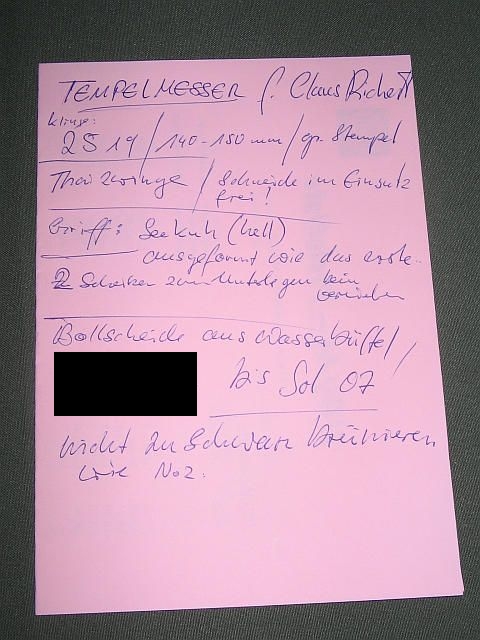 TEMPELMESSER f. Claus Richert
Klinge:
2519 / 140-150 mm / gr. Stempel
Thai zwinge / Schneide im Einsatz
frei!
Griff: Seekuh (hell)
ausgeformt wie das erste..
2 Scheiben zum Unterlegen beim
vernieten
Bollscheide aus Wasserbüffel /
bis Sol 07
nicht zu schwarz brünieren
wie No2.